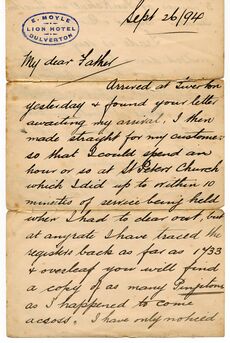 E. MOYLE
LION HOTEL
DULVERTON
Sept 26/94
My dear Father
Arrived at Tiverton
yesterday & found your letter
awaiting my arrival, I then
made straight for my custome:
so that I could spend an
hour or so at St Peters Church
which I did up to within 10
minutes of service being held
when I had to clear out, but
at anyrate I have traced the
registers back as far as 1733
& overleaf you will find
a copy of as many Pimploms
as I happened to come
across. I have only noticed